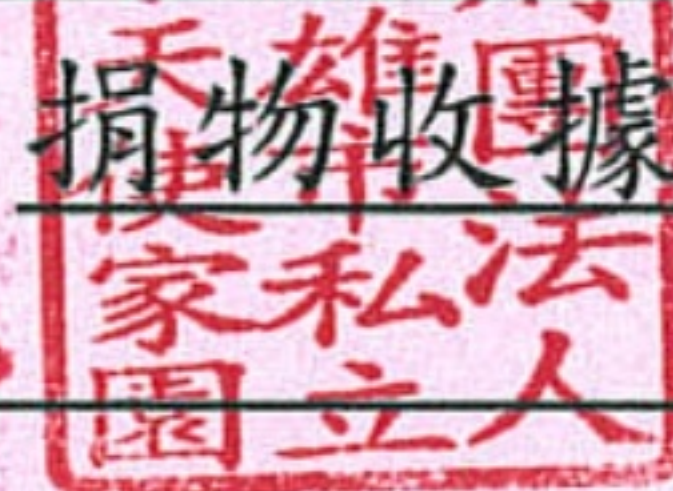 捐物收據
團法人
雄市私立
天使家園